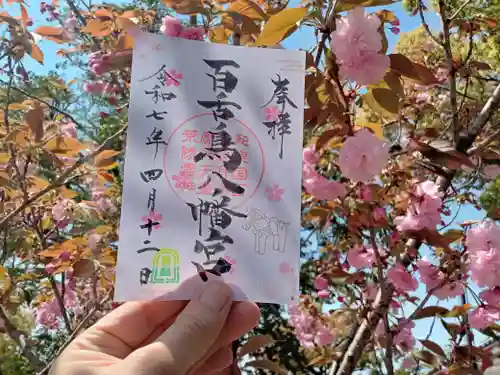 奉拝
百舌鳥八幡宮
令和七年四月十二日